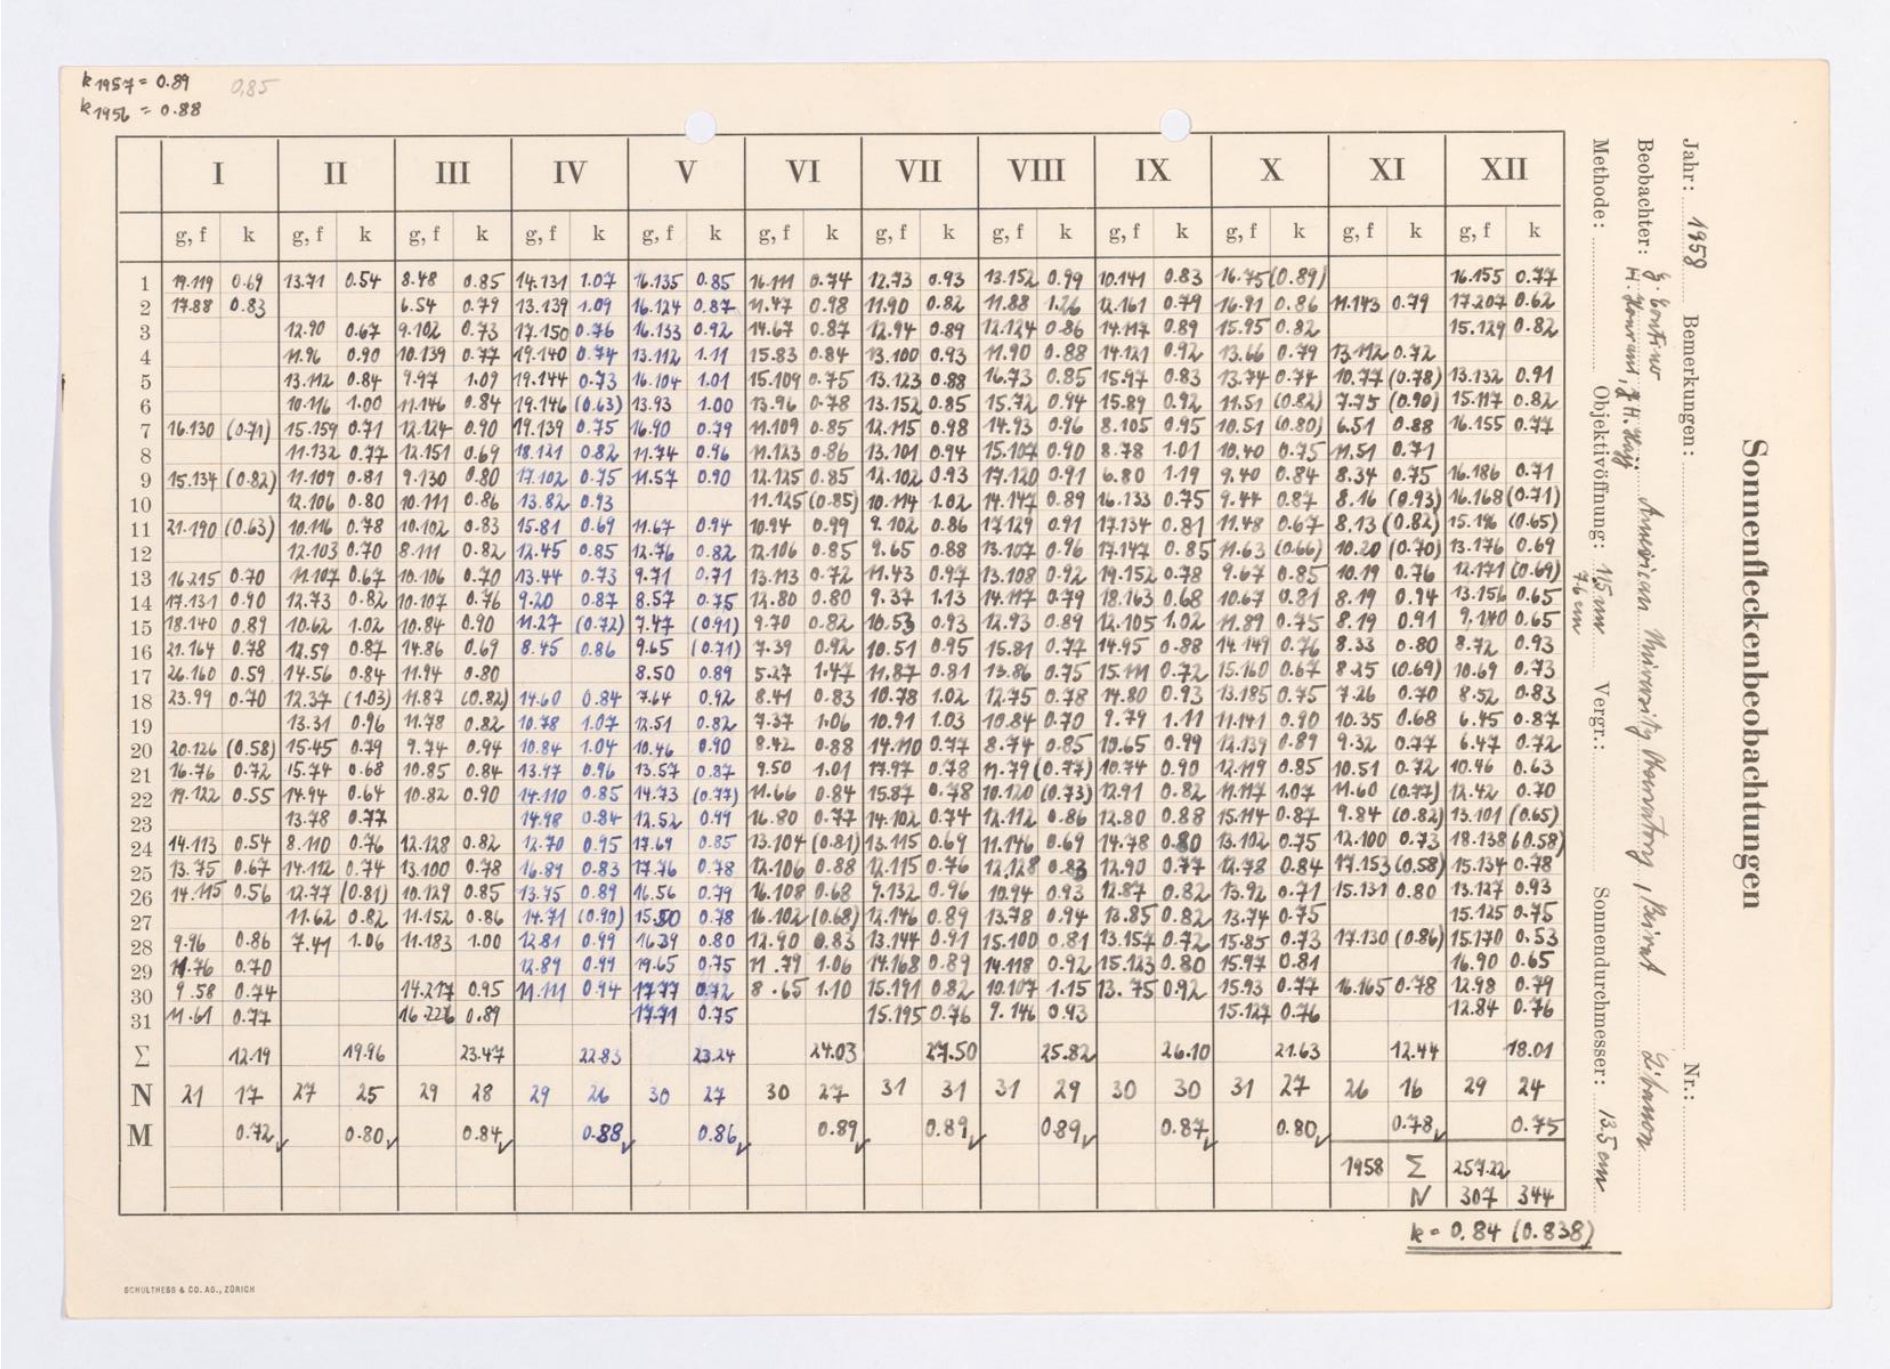 k1957 = 0.89 0,85
k1956 = 0.88
Sonnenfleckenbeobachtungen
Jahr: 1958 Bemerkungen: Nr.:
Beobachter: American University Observatory, Beirut Libanon
Methode: Objektivöffnung: 115 mm Vergr.: Sonnendurchmesser: 13.5 cm
7.6 cm
I II III IV V VI VII VIII IX X XI XII
g, f k g, f k g, f k g, f k g, f k g, f k g, f k g, f k g, f k g, f k g, f k g, f k
1 19.119 0.69 13.71 0.54 8.48 0.85 14.131 1.07 16.135 0.85 16.111 0.74 12.73 0.93 13.152 0.99 10.141 0.83 16.75 (0.89) 16.155 0.77
2 17.88 0.83 6.54 0.79 13.139 1.09 16.124 0.87 11.47 0.98 11.90 0.82 11.88 1.26 12.161 0.79 16.91 0.86 11.143 0.79 17.207 0.62
3 12.90 0.67 9.102 0.73 17.150 0.76 16.133 0.92 14.67 0.87 12.94 0.89 12.124 0.86 14.117 0.89 15.95 0.82 15.129 0.82
4 11.96 0.90 10.139 0.77 19.140 0.74 13.112 1.11 15.83 0.84 13.100 0.93 11.90 0.88 14.121 0.92 13.66 0.79 13.112 0.72
5 13.112 0.84 9.97 1.09 19.144 0.73 16.104 1.01 15.109 0.75 13.123 0.88 16.73 0.85 15.97 0.83 13.74 0.74 10.77 (0.78) 13.132 0.91
6 10.116 1.00 11.146 0.84 19.146 (0.63) 13.93 1.00 13.96 0.78 13.152 0.85 15.72 0.94 15.89 0.92 11.51 (0.82) 7.75 (0.90) 15.117 0.82
7 16.130 (0.71) 15.159 0.71 12.124 0.90 19.139 0.75 16.90 0.79 11.109 0.85 12.115 0.98 14.93 0.96 8.105 0.95 10.51 (0.80) 6.51 0.88 16.155 0.77
8 11.132 0.77 12.151 0.69 18.121 0.82 11.74 0.96 11.123 0.86 13.101 0.94 15.107 0.90 8.78 1.01 10.40 0.75 11.51 0.71
9 15.134 (0.82) 11.109 0.81 9.130 0.80 17.102 0.75 11.57 0.90 12.125 0.85 12.102 0.93 17.120 0.91 6.80 1.19 9.40 0.84 8.34 0.75 16.186 0.71
10 12.106 0.80 10.111 0.86 13.82 0.93 11.125 (0.85) 10.114 1.02 14.147 0.89 16.133 0.75 9.44 0.87 8.16 (0.93) 16.168 (0.71)
11 21.190 (0.63) 10.116 0.78 10.102 0.83 15.81 0.69 11.67 0.94 10.94 0.99 9.102 0.86 17.129 0.91 17.134 0.81 11.48 0.67 8.13 (0.82) 15.196 (0.65)
12 12.103 0.70 8.111 0.82 12.45 0.85 12.76 0.82 12.106 0.85 9.65 0.88 13.107 0.96 17.147 0.85 11.63 (0.66) 10.20 (0.70) 13.176 0.69
13 16.215 0.70 11.107 0.67 10.106 0.70 13.44 0.73 9.71 0.71 13.113 0.72 11.43 0.97 13.108 0.92 19.152 0.78 9.67 0.85 10.19 0.76 12.171 (0.69)
14 17.131 0.90 12.73 0.82 10.107 0.76 9.20 0.87 8.57 0.75 12.80 0.80 9.37 1.13 14.117 0.79 18.163 0.68 10.67 0.81 8.19 0.94 13.156 0.65
15 18.140 0.89 10.62 1.02 10.84 0.90 11.27 (0.72) 7.47 (0.91) 9.70 0.82 10.53 0.93 12.93 0.89 12.105 1.02 11.89 0.75 8.19 0.91 9.140 0.65
16 21.164 0.78 12.59 0.87 14.86 0.69 8.45 0.86 9.65 (0.71) 7.39 0.92 10.51 0.95 15.81 0.77 14.95 0.88 14.149 0.76 8.33 0.80 8.72 0.93
17 26.160 0.59 14.56 0.84 11.94 0.80 8.50 0.89 5.27 1.47 11.87 0.81 13.86 0.75 15.111 0.72 15.160 0.67 8.25 (0.69) 10.69 0.73
18 23.99 0.70 12.37 (1.03) 11.87 (0.82) 14.60 0.84 7.64 0.92 8.41 0.83 10.78 1.02 12.75 0.78 14.80 0.93 13.185 0.75 7.26 0.70 8.52 0.83
19 13.31 0.96 11.78 0.82 10.78 1.07 12.51 0.82 7.37 1.06 10.91 1.03 10.84 0.70 9.79 1.11 11.141 0.90 10.35 0.68 6.45 0.87
20 20.126 (0.58) 15.45 0.79 9.74 0.94 10.84 1.04 10.46 0.90 8.42 0.88 14.110 0.77 8.74 0.85 10.65 0.99 12.139 0.89 9.32 0.77 6.47 0.72
21 16.76 0.72 15.74 0.68 10.85 0.84 13.97 0.96 13.57 0.87 9.50 1.01 17.97 0.78 11.79 (0.77) 10.74 0.90 12.119 0.85 10.51 0.72 10.46 0.63
22 19.122 0.55 14.94 0.64 10.82 0.90 14.110 0.85 14.73 (0.77) 11.66 0.84 15.87 0.78 10.120 (0.73) 12.91 0.82 11.117 1.07 11.60 (0.77) 12.42 0.70
23 13.78 0.77 14.98 0.84 12.52 0.99 16.80 0.77 14.102 0.74 12.112 0.86 12.80 0.88 15.114 0.87 9.84 (0.82) 13.101 (0.65)
24 14.113 0.54 8.110 0.76 12.128 0.82 12.70 0.95 17.69 0.85 13.104 (0.81) 13.115 0.69 11.146 0.69 14.78 0.80 13.102 0.75 12.100 0.73 18.138 (0.58)
25 13.75 0.67 14.112 0.74 13.100 0.78 16.89 0.83 17.76 0.78 12.106 0.88 12.115 0.76 12.128 0.83 12.90 0.77 12.78 0.84 17.153 (0.58) 15.134 0.78
26 14.115 0.56 12.77 (0.81) 10.129 0.85 13.75 0.89 16.56 0.79 16.108 0.68 9.132 0.96 10.94 0.93 12.87 0.82 13.92 0.71 15.131 0.80 13.127 0.93
27 11.62 0.82 11.152 0.86 14.71 (0.90) 15.50 0.78 16.102 (0.68) 12.146 0.89 13.78 0.94 13.85 0.82 13.74 0.75 15.125 0.75
28 9.96 0.86 7.41 1.06 11.183 1.00 12.81 0.99 16.39 0.80 12.90 0.83 13.144 0.91 15.100 0.81 13.157 0.72 15.85 0.73 17.130 (0.86) 15.170 0.53
29 11.76 0.70 12.89 0.99 19.65 0.75 11.79 1.06 14.168 0.89 14.118 0.92 15.123 0.80 15.97 0.81 16.90 0.65
30 9.58 0.74 14.217 0.95 11.111 0.94 17.77 0.72 8.65 1.10 15.191 0.82 10.107 1.15 13.75 0.92 15.93 0.77 16.165 0.78 12.98 0.79
31 11.61 0.77 16.226 0.89 17.71 0.75 15.195 0.76 9.146 0.93 15.127 0.76 12.84 0.76
Σ 12.19 19.96 23.47 22.83 23.24 24.03 27.50 25.82 26.10 21.63 12.44 18.01
N 21 17 27 25 29 28 29 26 30 27 30 27 31 31 31 29 30 30 31 27 26 16 29 24
M 0.72 0.80 0.84 0.88 0.86 0.89 0.89 0.89 0.87 0.80 0.78 0.75
1958 Σ 257.22
N 307 344
k = 0.84 (0.838)
SCHULTHESS & CO. AG., ZÜRICH